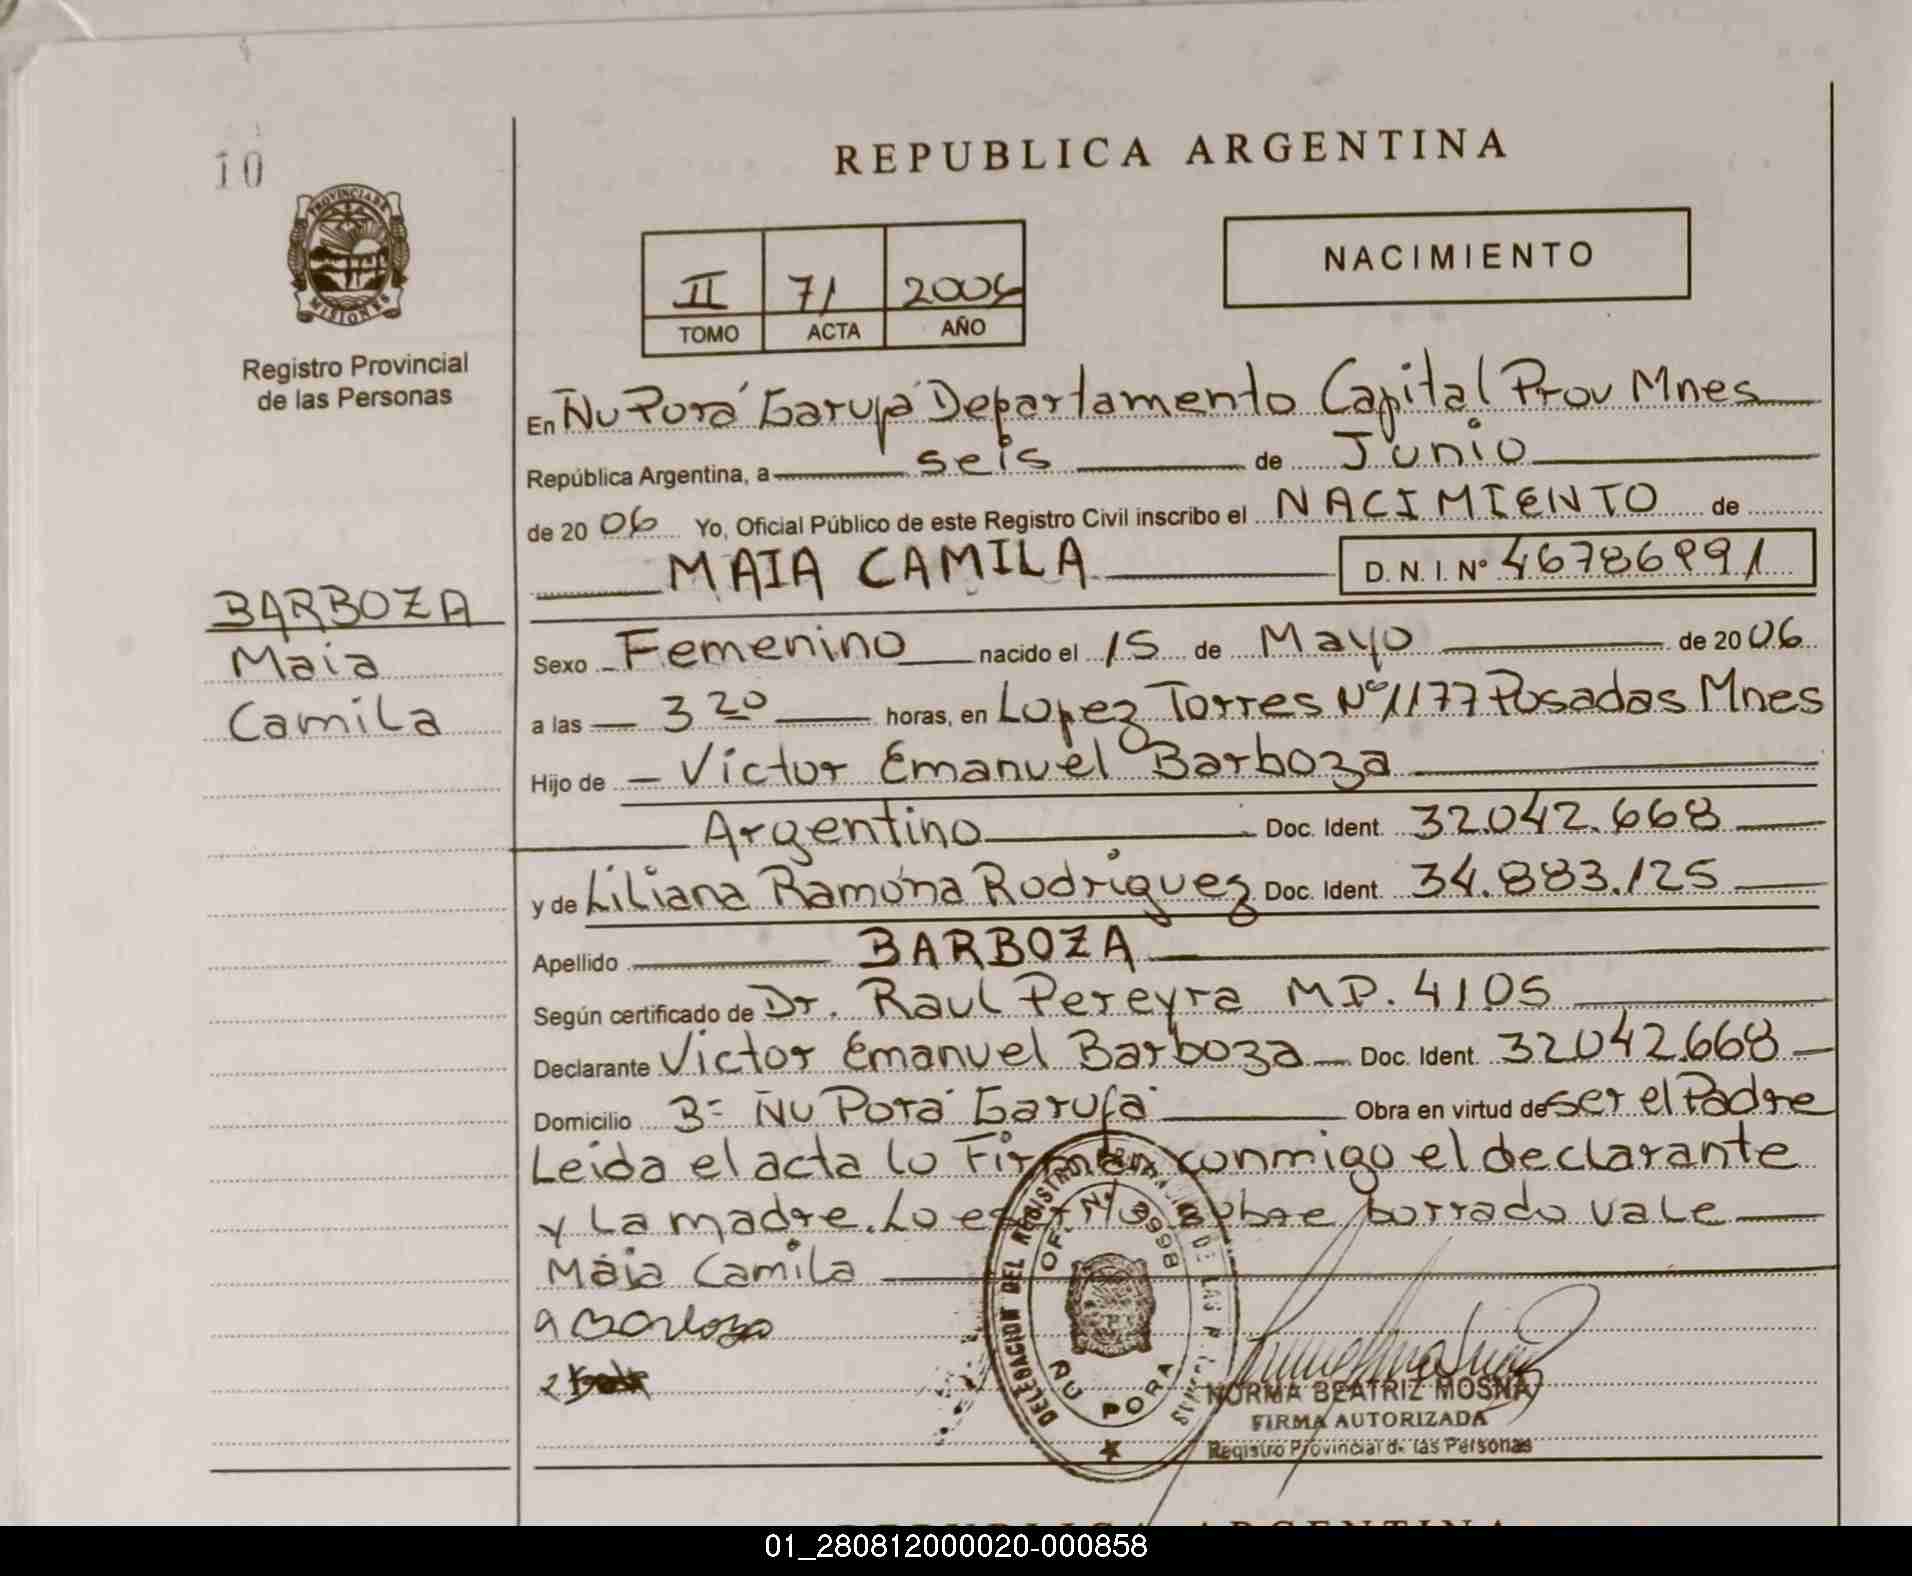 10
PROVINCIA DE
MISIONES
Registro Provincial
de las Personas
BARBOZA
Maia
Camila
REPUBLICA ARGENTINA
II 71 2006
TOMO ACTA AÑO
NACIMIENTO
En Ñu Porá Garupá Departamento Capital Prov Mnes
República Argentina, a seis de Junio
de 2006 Yo, Oficial Público de este Registro Civil inscribo el NACIMIENTO de
MAIA CAMILA D. N. I. Nº 46786991
Sexo Femenino nacido el 15 de Mayo de 2006
a las 3 20 horas, en Lopez Torres Nº 1177 Posadas Mnes
Hijo de Victor Emanuel Barboza
Argentino Doc. Ident. 32.042.668
y de Liliana Ramona Rodriguez Doc. Ident. 34.883.125
Apellido BARBOZA
Según certificado de Dr. Raul Pereyra M.P. 4105
Declarante Victor Emanuel Barboza Doc. Ident. 32042.668
Domicilio Bº Ñu Porá Garupá Obra en virtud de ser el Padre
Leida el acta lo Firman conmigo el declarante
y La madre. Lo sobre borrado vale
Maia Camila
DELEGACION DEL REGISTRO DE LAS
OF. Nº 3998
ÑU PORA
NORMA BEATRIZ MOSNA
FIRMA AUTORIZADA
Registro Provincial de las Personas
REPUBLICA ARGENTINA
01_280812000020-000858